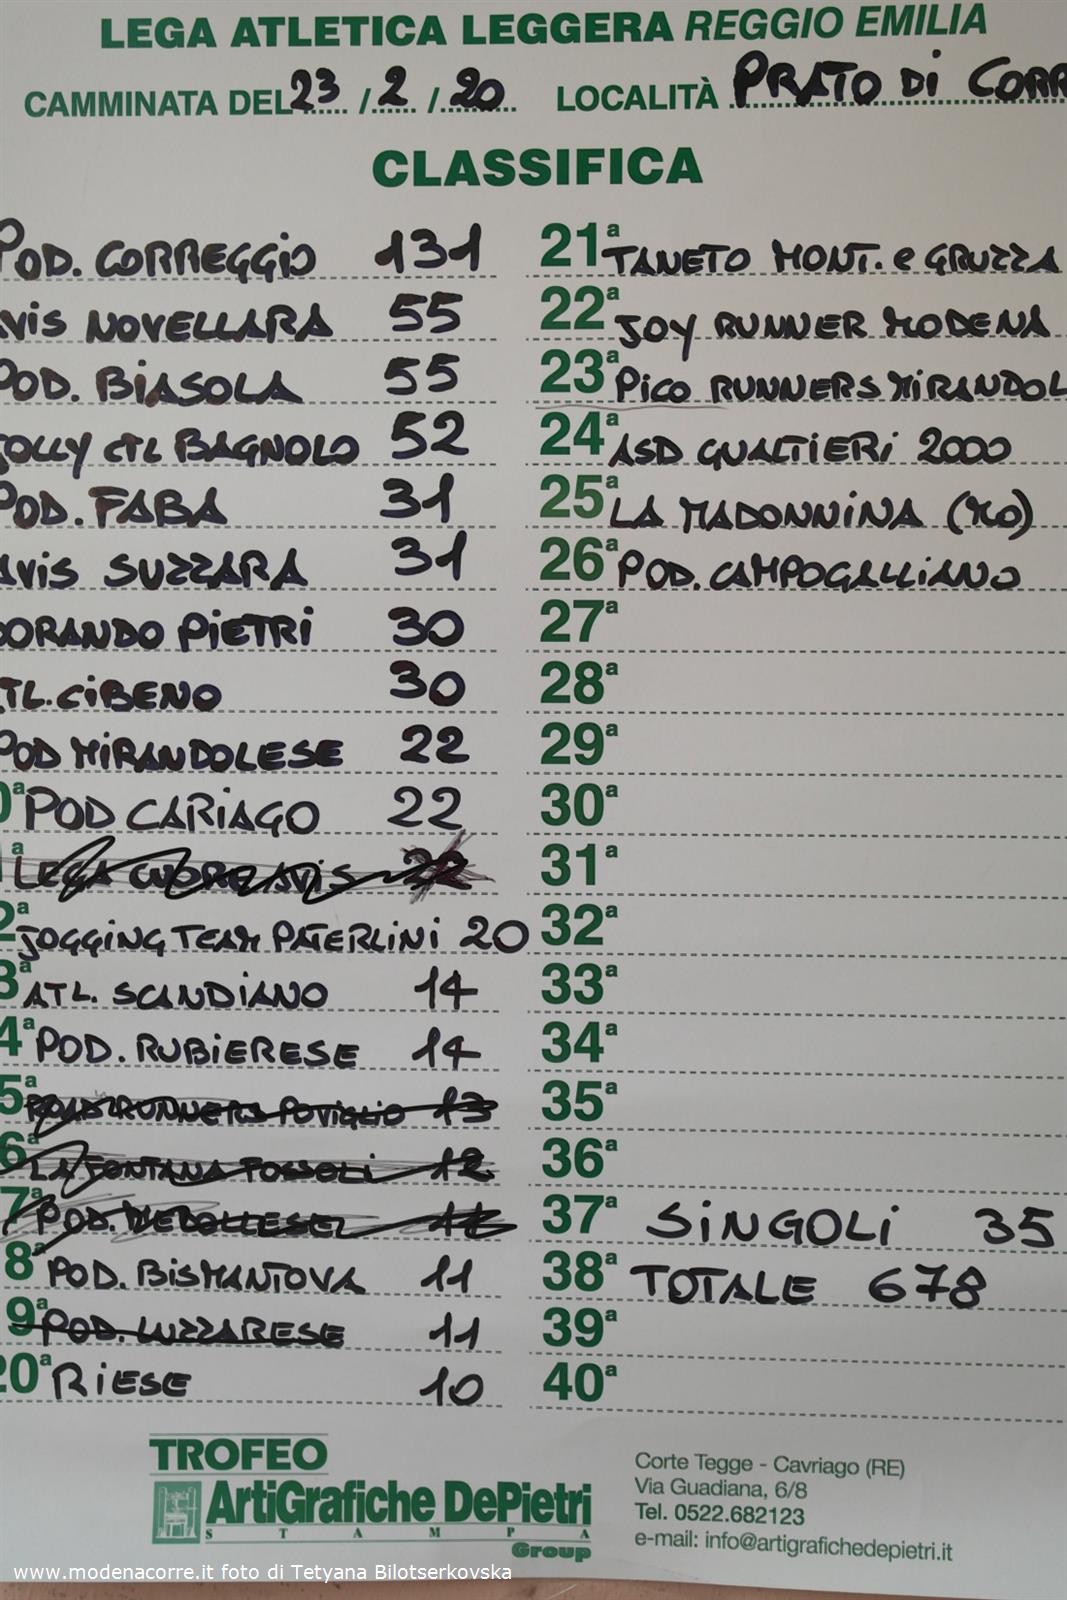 LEGA ATLETICA LEGGERA REGGIO EMILIA
CAMMINATA DEL 23 / 2 / 20 LOCALITÀ PRATO DI CORR
CLASSIFICA
POD. CORREGGIO 131
AVIS NOVELLARA 55
POD. BIASOLA 55
JOLLY CTL BAGNOLO 52
POD. FABA 31
AVIS SUZZARA 31
DORANDO PIETRI 30
ATL. CIBENO 30
POD MIRANDOLESE 22
0ª POD CARIAGO 22
ª LEGA CUORE AVIS 22
2ª JOGGING TEAM PATERLINI 20
3ª ATL. SCANDIANO 14
4ª POD. RUBIERESE 14
5ª ROAD RUNNERS POVIGLIO 13
6ª LA FONTANA FOSSOLI 12
7ª POD. MEDOLLESE
8ª POD. BISMANTOVA 11
9ª POD. LUZZARESE 11
20ª RIESE 10
21ª TANETO MONT. e GRUZZA
22ª JOY RUNNER MODENA
23ª PICO RUNNERS MIRANDOL
24ª ASD GUALTIERI 2000
25ª LA MADONNINA (MO)
26ª POD. CAMPOGALLIANO
27ª
28ª
29ª
30ª
31ª
32ª
33ª
34ª
35ª
36ª
37ª SINGOLI 35
38ª TOTALE 678
39ª
40ª
TROFEO
ArtiGrafiche DePietri
STAMPA
Group
Corte Tegge - Cavriago (RE)
Via Guadiana, 6/8
Tel. 0522.682123
e-mail: info@artigrafichedepietri.it
www.modenacorre.it foto di Tetyana Bilotserkovska